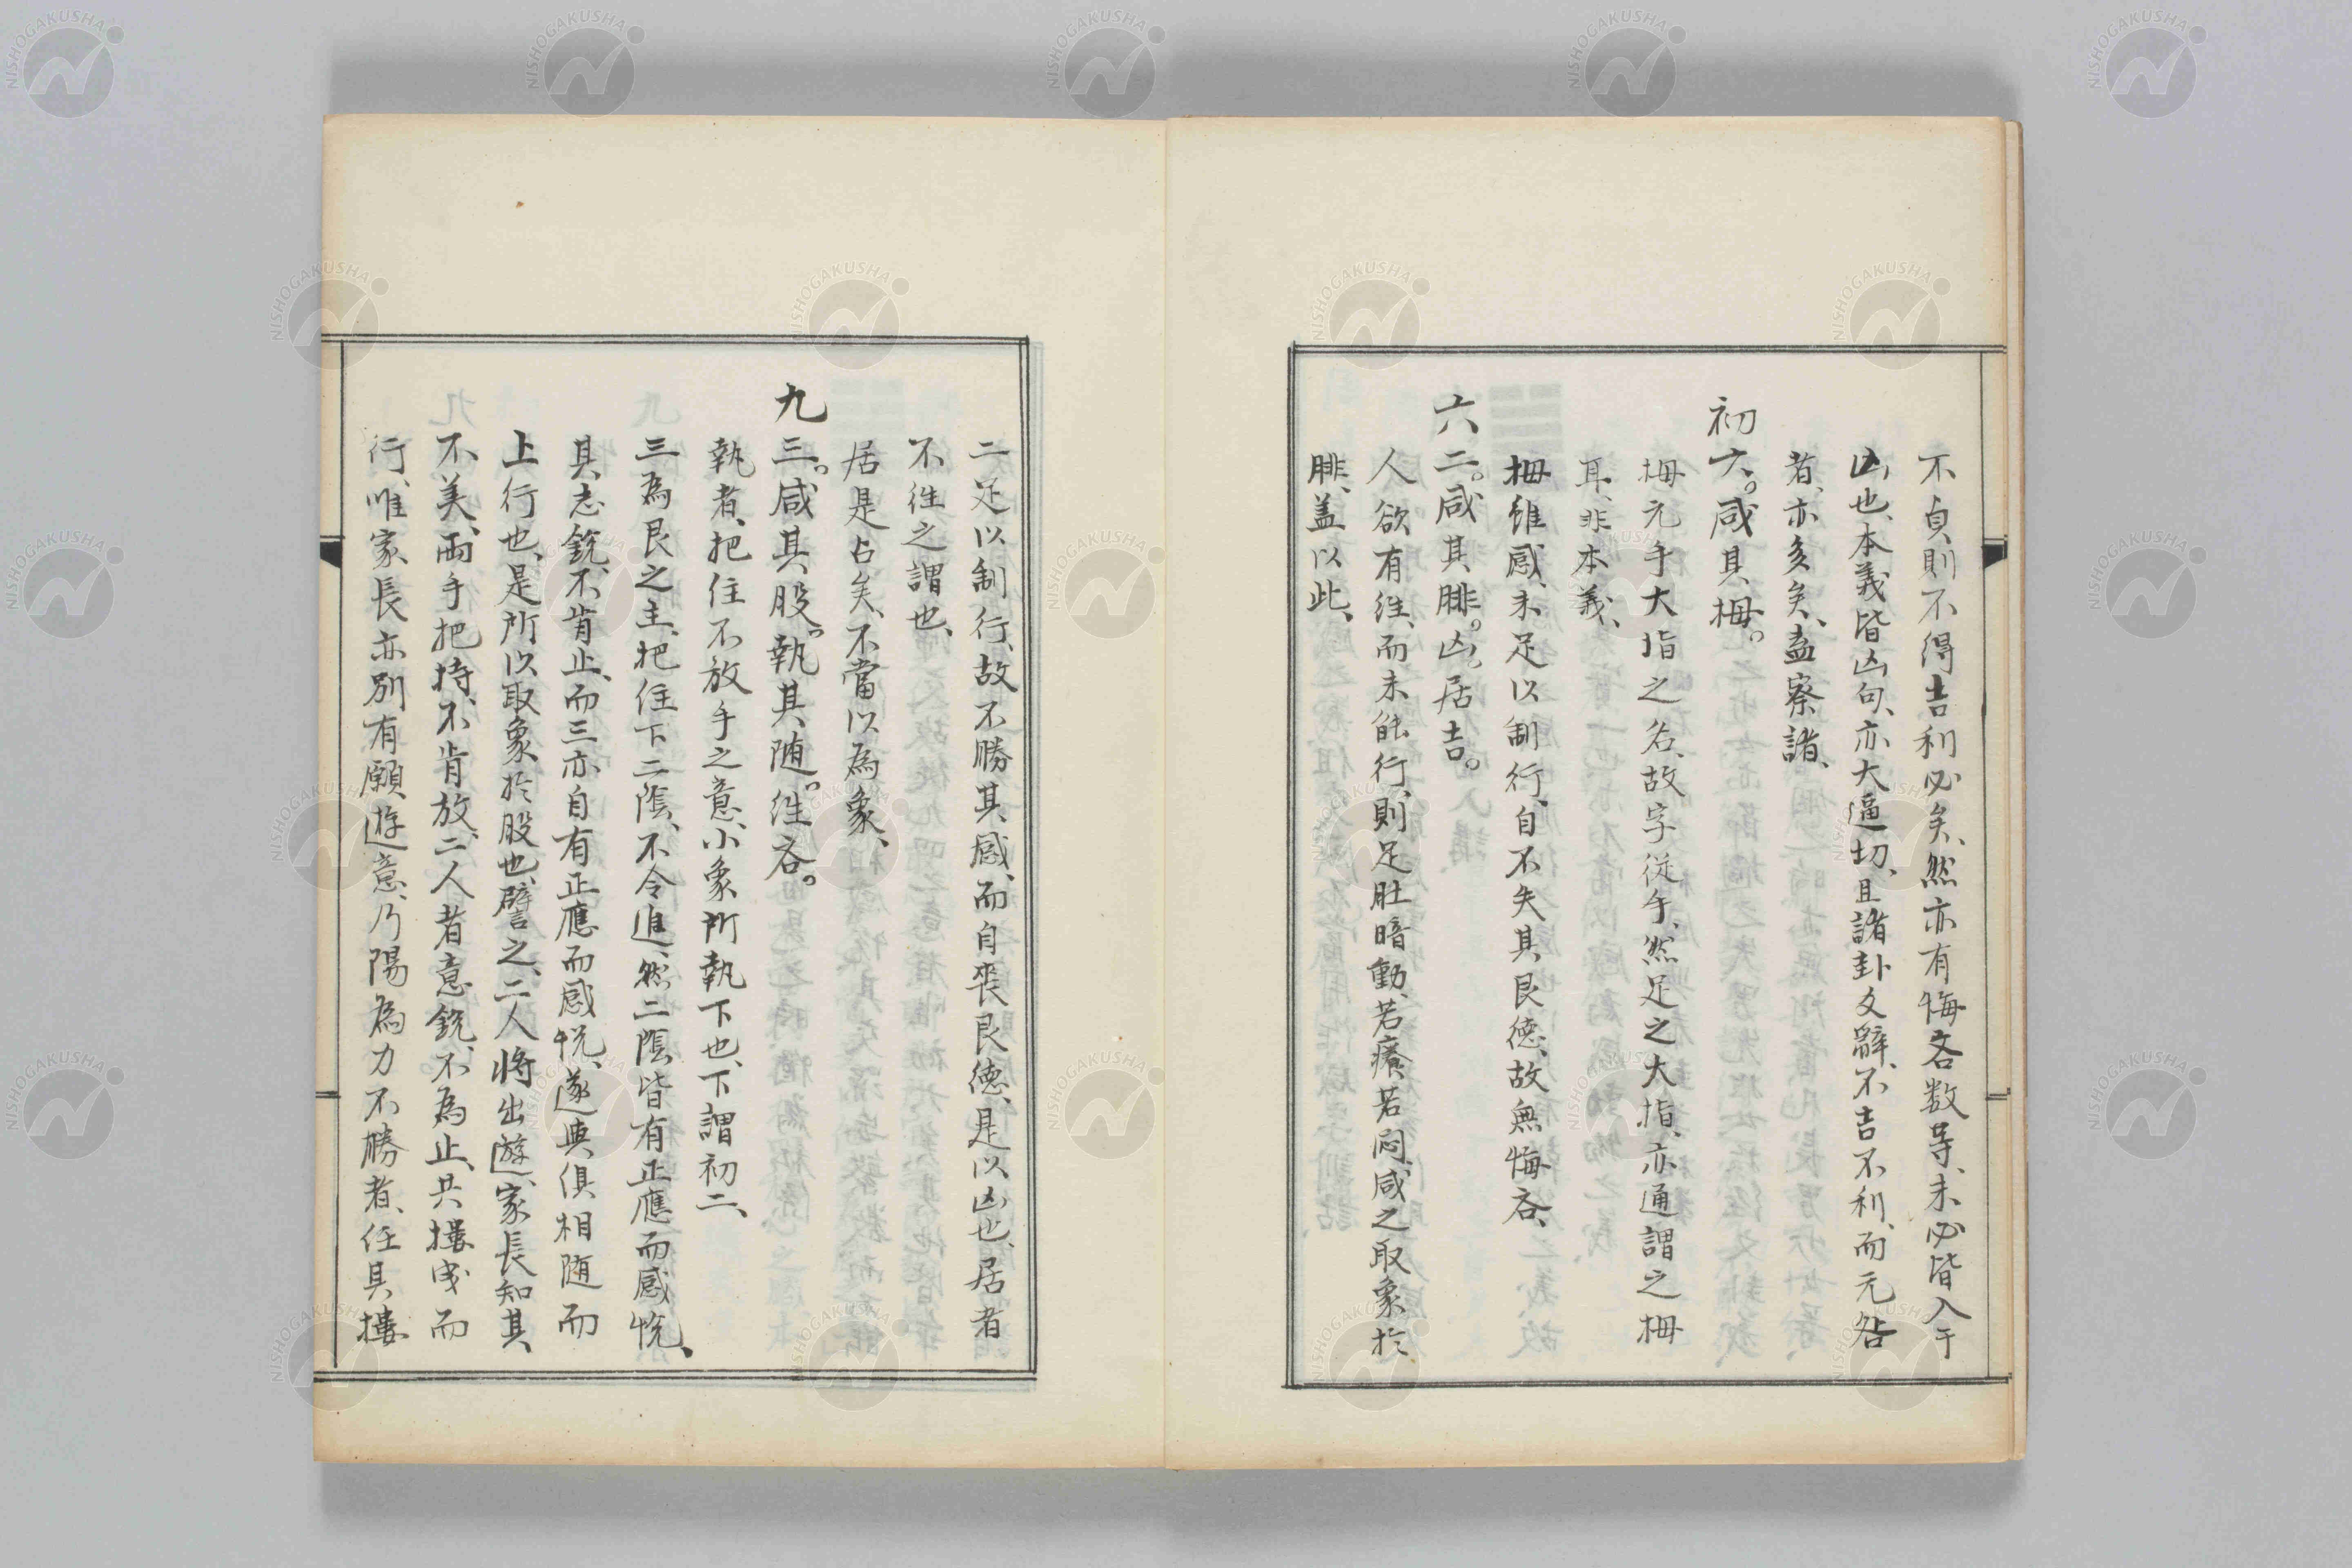 不貞則不得吉利必矣、然亦有悔吝数等、未必皆入于
凶也、本義皆凶句、亦大逼切、且諸卦爻辭、不吉不利、而元咎
者、亦多矣、盍察諸、
初六。咸其拇。
拇元手大指之名、故字従手、然足之大指、亦通謂之拇
耳、非本義、
拇雖感、未足以制行、自不失其艮徳、故無悔吝、
六二。咸其腓。凶。居吉。
人欲有往、而未能行、則足肚暗動、若癢若悶、咸之取象於
腓、蓋以此、
二足以制行、故不勝其感、而自喪艮徳、是以凶也、居者
不往之謂也、
居是占矣、不當以為象、
九三。咸其股。執其随。往吝。
執者、把住不放手之意、小象所執下也、下謂初二、
三為艮之主、把住下二陰、不令進、然二陰皆有正應而感悦、
其志鋭、不肯止、而三亦自有正應而感悦、遂與俱相随而
上行也、是所以取象於股也、譬之、二人将出遊、家長知其
不美、兩手把持、不肯放、二人者意鋭、不為止、共摟曳而
行、唯家長亦別有願遊意、乃陽為力不勝者、任其摟
NISHOGAKUSHA